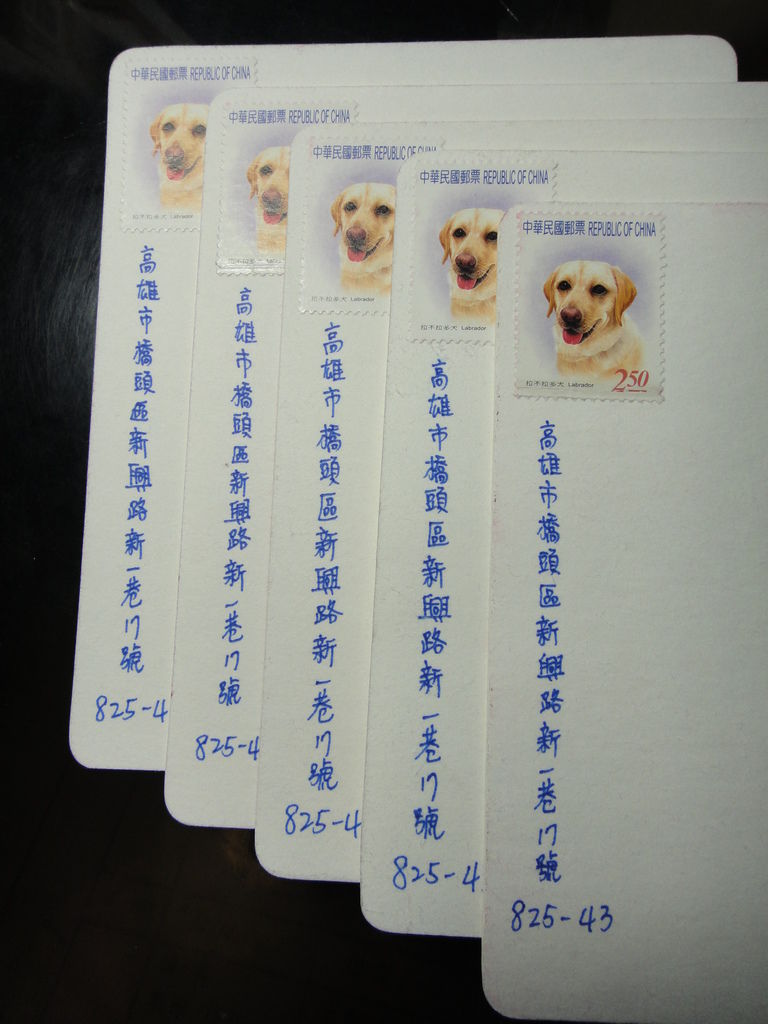 中華民國郵票 REPUBLIC OF CHINA
拉不拉多犬 Labrador
高雄市橋頭區新興路新一巷17號
825-4
中華民國郵票 REPUBLIC OF CHINA
拉不拉多犬 Labr
高雄市橋頭區新興路新一巷17號
825-4
中華民國郵票 REPUBLIC OF
拉不拉多犬 Labrador
高雄市橋頭區新興路新一巷17號
825-4
中華民國郵票 REPUBLIC OF CHINA
拉不拉多犬 Labrador
高雄市橋頭區新興路新一巷17號
825-4
中華民國郵票 REPUBLIC OF CHINA
拉不拉多犬 Labrador
2.50
高雄市橋頭區新興路新一巷17號
825-43